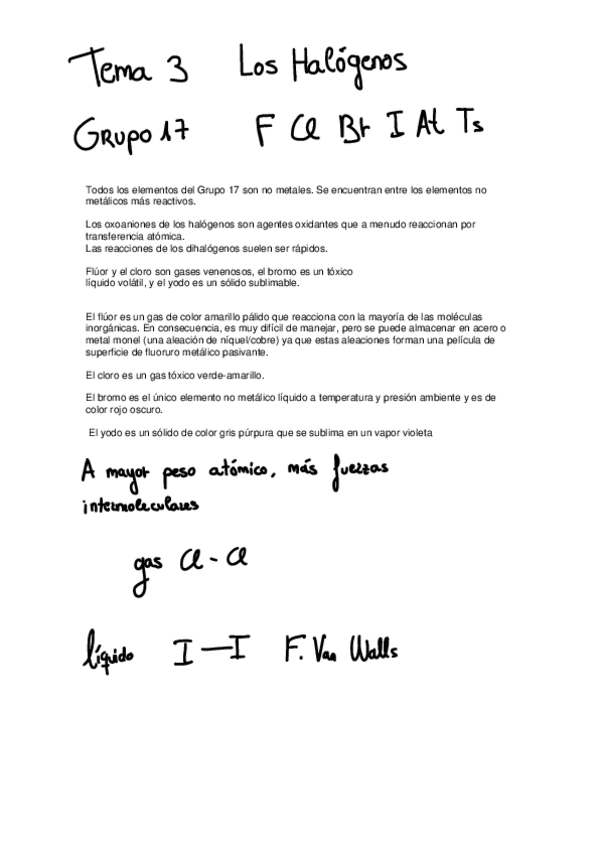 Tema 3 Los Halógenos
Grupo 17 F Cl Br I At Ts
Todos los elementos del Grupo 17 son no metales. Se encuentran entre los elementos no
metálicos más reactivos.
Los oxoaniones de los halógenos son agentes oxidantes que a menudo reaccionan por
transferencia atómica.
Las reacciones de los dihalógenos suelen ser rápidos.
Flúor y el cloro son gases venenosos, el bromo es un tóxico
líquido volátil, y el yodo es un sólido sublimable.
El flúor es un gas de color amarillo pálido que reacciona con la mayoría de las moléculas
inorgánicas. En consecuencia, es muy difícil de manejar, pero se puede almacenar en acero o
metal monel (una aleación de níquel/cobre) ya que estas aleaciones forman una película de
superficie de fluoruro metálico pasivante.
El cloro es un gas tóxico verde-amarillo.
El bromo es el único elemento no metálico líquido a temperatura y presión ambiente y es de
color rojo oscuro.
El yodo es un sólido de color gris púrpura que se sublima en un vapor violeta
A mayor peso atómico, más fuerzas
intermoleculares
gas Cl - Cl
líquido I - I F. Van Walls